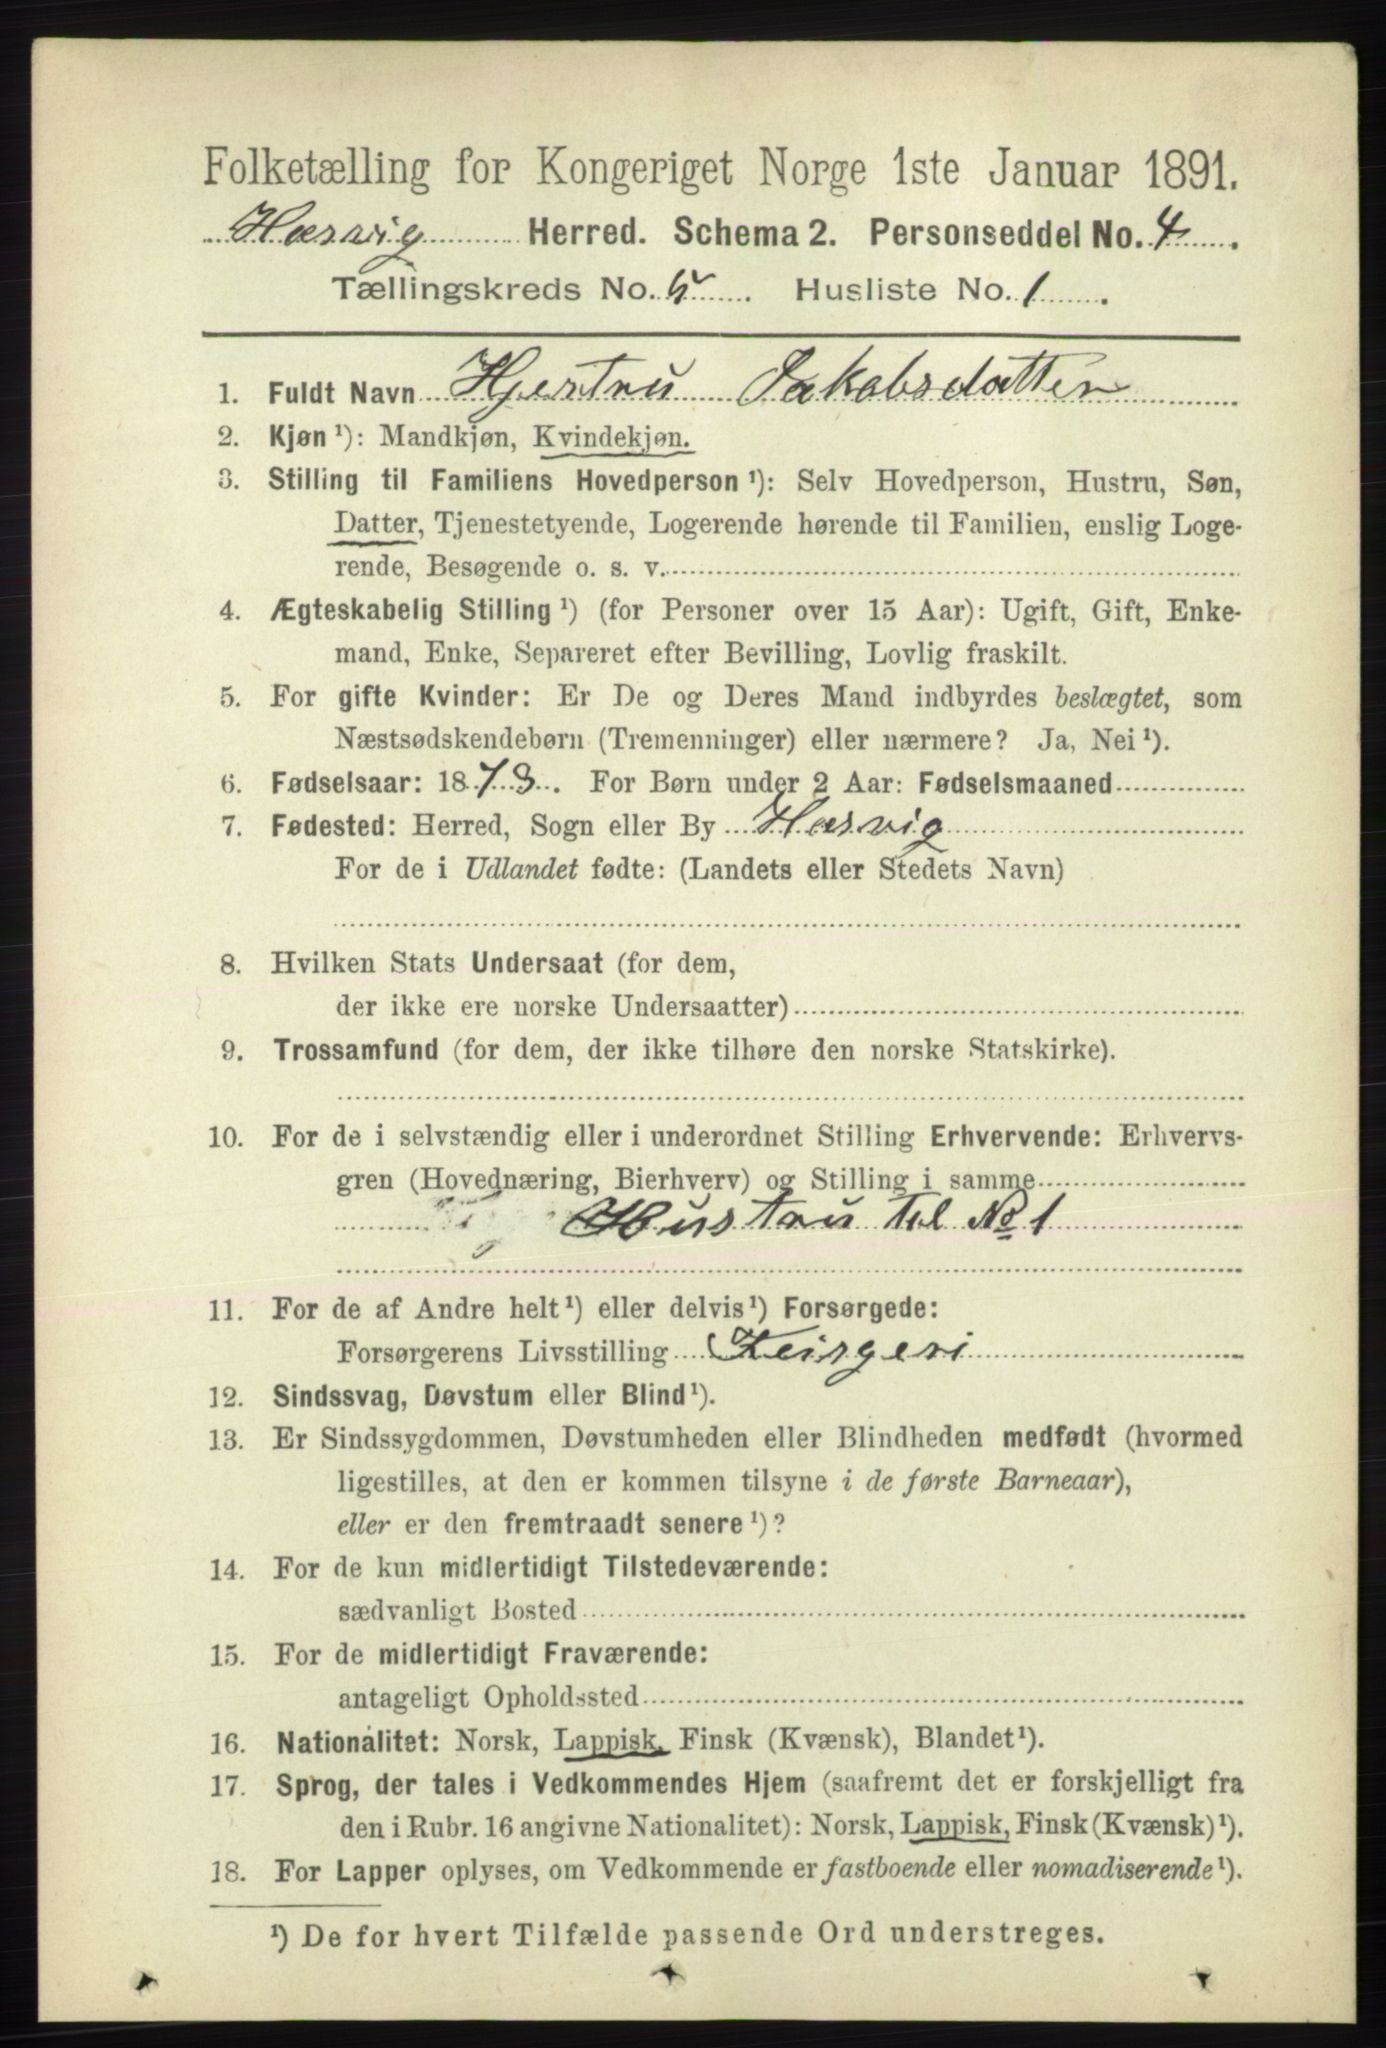 Folketælling for Kongeriget Norge 1ste Januar 1891.
Hasvig Herred. Schema 2. Personseddel No. 4.
Tællingskreds No. 5. Husliste No. 1.
1. Fuldt Navn Hjertru Jakobsdatter
2. Kjøn ¹): Mandkjøn, Kvindekjøn.
3. Stilling til Familiens Hovedperson ¹): Selv Hovedperson, Hustru, Søn,
Datter, Tjenestetyende, Logerende hørende til Familien, enslig Loge-
rende, Besøgende o. s. v.
4. Ægteskabelig Stilling ¹) (for Personer over 15 Aar): Ugift, Gift, Enke-
mand, Enke, Separeret efter Bevilling, Lovlig fraskilt.
5. For gifte Kvinder: Er De og Deres Mand indbyrdes beslægtet, som
Næstsødskendebørn (Tremenninger) eller nærmere? Ja, Nei ¹).
6. Fødselsaar: 1873. For Børn under 2 Aar: Fødselsmaaned
7. Fødested: Herred, Sogn eller By Hasvig
For de i Udlandet fødte: (Landets eller Stedets Navn)
8. Hvilken Stats Undersaat (for dem,
der ikke ere norske Undersaatter)
9. Trossamfund (for dem, der ikke tilhøre den norske Statskirke).
10. For de i selvstændig eller i underordnet Stilling Erhvervende: Erhvervs-
gren (Hovednæring, Bierhverv) og Stilling i samme
Hustru til No 1
11. For de af Andre helt ¹) eller delvis ¹) Forsørgede:
Forsørgerens Livsstilling
12. Sindssvag, Døvstum eller Blind ¹).
13. Er Sindssygdommen, Døvstumheden eller Blindheden medfødt (hvormed
ligestilles, at den er kommen tilsyne i de første Barneaar),
eller er den fremtraadt senere ¹)?
14. For de kun midlertidigt Tilstedeværende:
sædvanligt Bosted
15. For de midlertidigt Fraværende:
antageligt Opholdssted
16. Nationalitet: Norsk, Lappisk, Finsk (Kvænsk), Blandet ¹).
17. Sprog, der tales i Vedkommendes Hjem (saafremt det er forskjelligt fra
den i Rubr. 16 angivne Nationalitet): Norsk, Lappisk, Finsk (Kvænsk) ¹).
18. For Lapper oplyses, om Vedkommende er fastboende eller nomadiserende ¹).
¹) De for hvert Tilfælde passende Ord understreges.